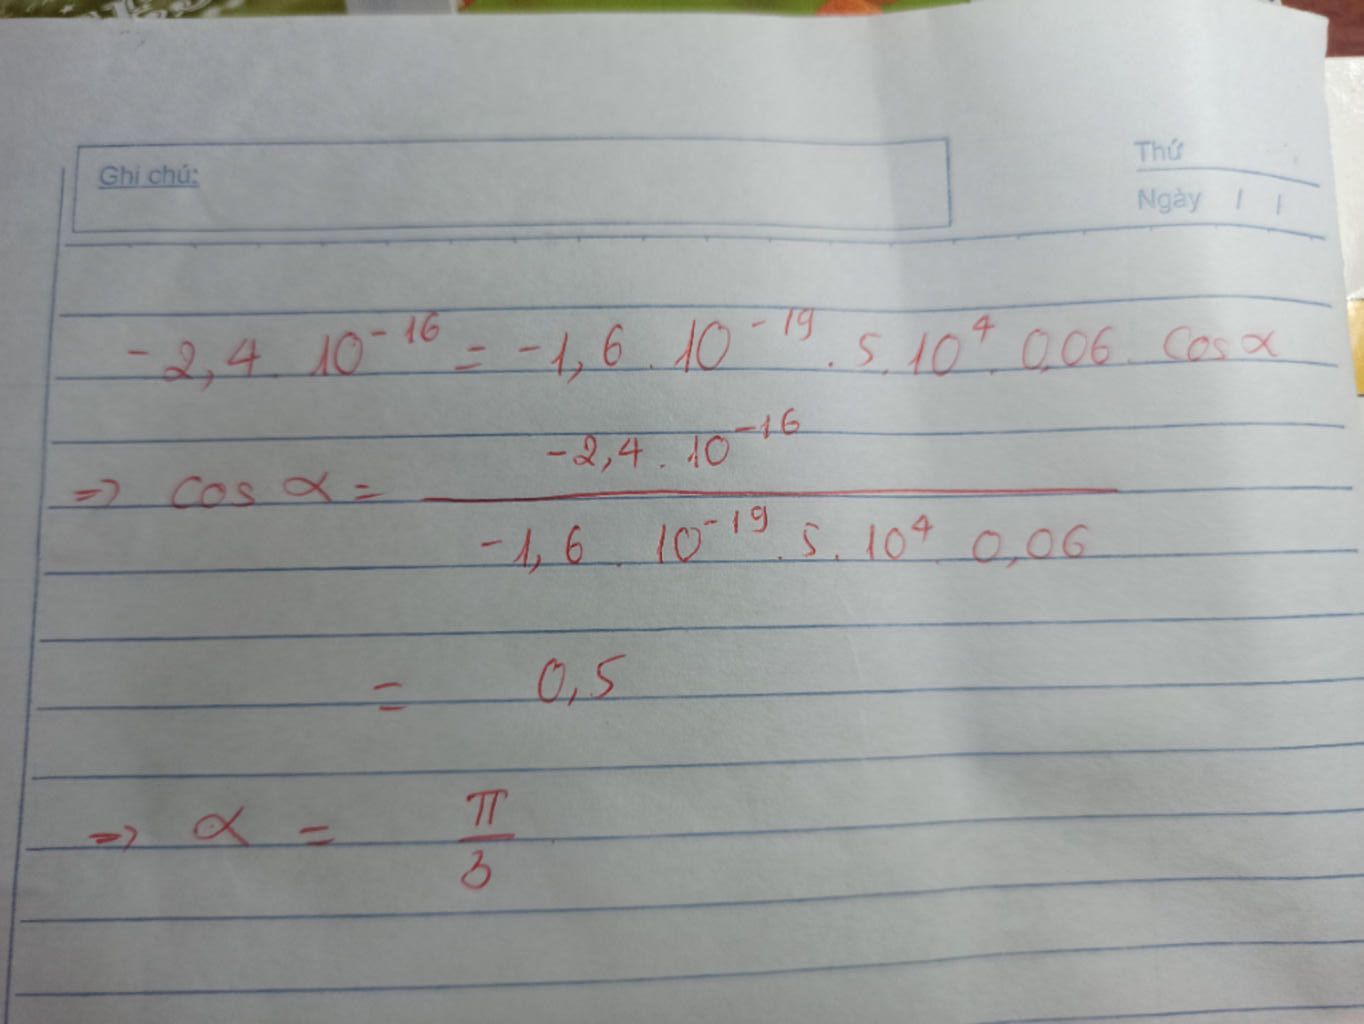 Ghi chú:
Thứ
Ngày / /
-2,4 . 10⁻¹⁶ = -1,6 . 10⁻¹⁹ . 5 . 10⁴ . 0,06 . cos α
-2,4 . 10⁻¹⁶
=> cos α =
-1,6 . 10⁻¹⁹ . 5 . 10⁴ . 0,06
= 0,5
=> α = π/3